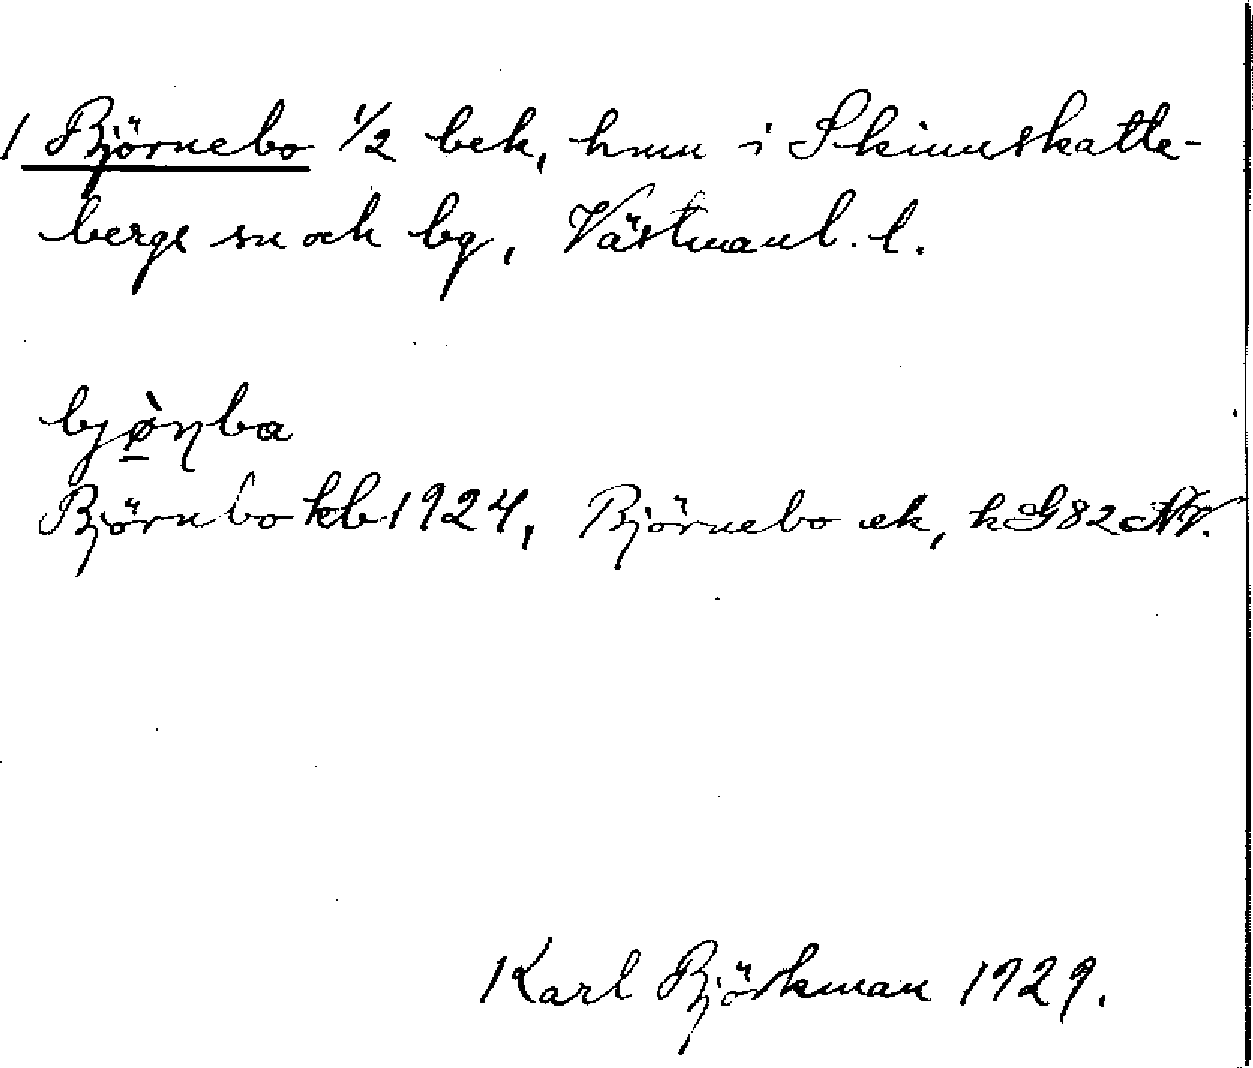 1 Björnebo 1/2 bek, hmn i Skinnskatte-
bergs sn och bg, Västmanl. l.
bjø̀ṇba
Björnbo kb 1924, Björnebo ek, kG82 NV.
Karl Björkman 1929.